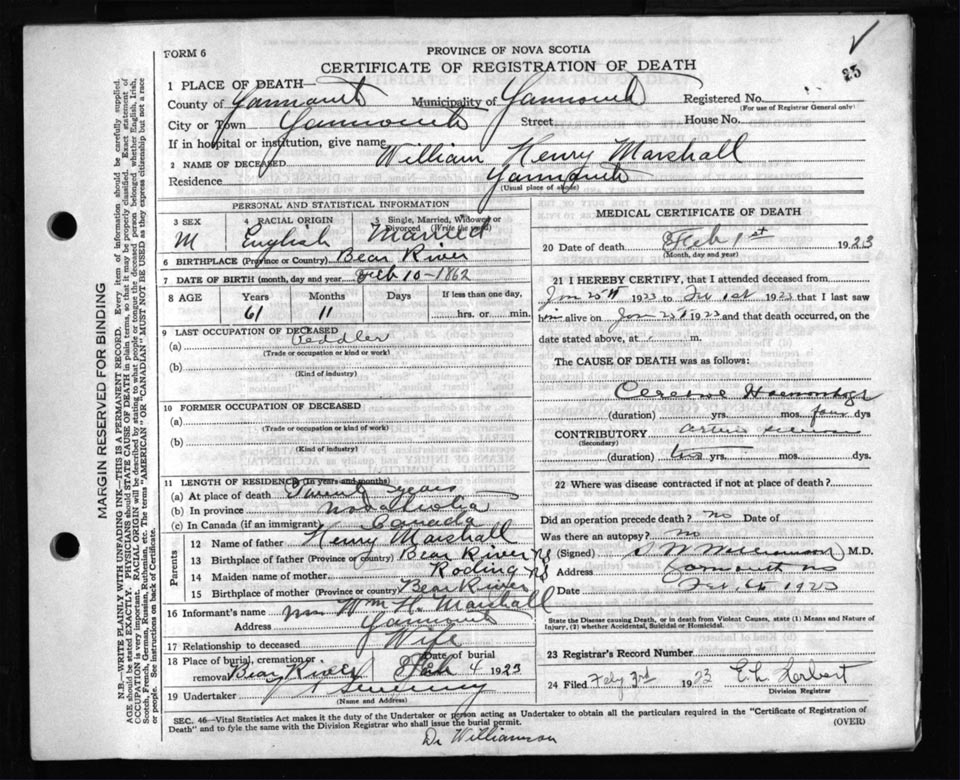 FORM 6
PROVINCE OF NOVA SCOTIA
CERTIFICATE OF REGISTRATION OF DEATH
23
1 PLACE OF DEATH
County of Yarmouth Municipality of Yarmouth Registered No.
(For use of Registrar General only)
City or Town Yarmouth Street House No.
If in hospital or institution, give name
2 NAME OF DECEASED William Henry Marshall
Residence Yarmouth
(Usual place of abode)
PERSONAL AND STATISTICAL INFORMATION
3 SEX M
4 RACIAL ORIGIN English
5 Single, Married, Widowed or Divorced (Write the word) Married
6 BIRTHPLACE (Province or Country) Bear River
7 DATE OF BIRTH (month, day and year) Feb 10-1862
8 AGE Years Months Days If less than one day,
61 11 hrs. or min.
9 LAST OCCUPATION OF DECEASED
(a) Peddler
(Trade or occupation or kind or work)
(b)
(Kind of industry)
10 FORMER OCCUPATION OF DECEASED
(a)
(Trade or occupation or kind of work)
(b)
(Kind of industry)
11 LENGTH OF RESIDENCE (in years and months)
(a) At place of death years
(b) In province Nova Scotia
(c) In Canada (if an immigrant) Canada
Parents
12 Name of father Henry Marshall
13 Birthplace of father (Province or country) Bear River NS
14 Maiden name of mother Roding
15 Birthplace of mother (Province or country) Bear River NS
16 Informant's name Mrs Wm H. Marshall
Address Yarmouth
17 Relationship to deceased Wife
18 Place of burial, cremation or removal Bear River Date of burial Feb 4 1923
19 Undertaker Sweeney
(Name and Address)
MEDICAL CERTIFICATE OF DEATH
20 Date of death Feb 1st 1923
(Month, day and year)
21 I HEREBY CERTIFY, that I attended deceased from
Jan 1923 to Feb 1st 1923 that I last saw
him alive on Jan 1923 and that death occurred, on the
date stated above, at m.
The CAUSE OF DEATH was as follows:
Haemorrhage
(duration) yrs. mos. four dys
CONTRIBUTORY
(Secondary)
(duration) yrs mos. dys
22 Where was disease contracted if not at place of death?
Did an operation precede death? no Date of
Was there an autopsy? no
(Signed) S W Williamson M.D.
Address Yarmouth NS
Date Feb 1923
State the Disease causing Death, or in death from Violent Causes, state (1) Means and Nature of Injury, (2) whether Accidental, Suicidal or Homicidal.
23 Registrar's Record Number
24 Filed Feby 3rd 1923
Division Registrar
SEC. 46—Vital Statistics Act makes it the duty of the Undertaker or person acting as Undertaker to obtain all the particulars required in the "Certificate of Registration of
Death" and to fyle the same with the Division Registrar who shall issue the burial permit. (OVER)
Dr Williamson
MARGIN RESERVED FOR BINDING
N.B.—WRITE PLAINLY WITH UNFADING INK—THIS IS A PERMANENT RECORD. Every item of information should be carefully supplied.
AGE should be stated EXACTLY. PHYSICIANS should STATE CAUSE OF DEATH in plain terms, so that it may be properly classified. Exact statement of
OCCUPATION is very important. RACIAL ORIGIN will be described by stating to what people or tongue the deceased person belonged whether English, Irish,
Scotch, French, German, Russian, Ruthenian, etc. The terms "AMERICAN" OR "CANADIAN" MUST NOT BE USED as they express citizenship but not a race
or people. See instructions on back of Certificate.